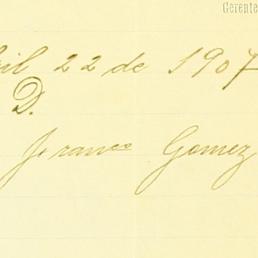 Gerente
ril 22 de 1907
D.
Franco Gomez